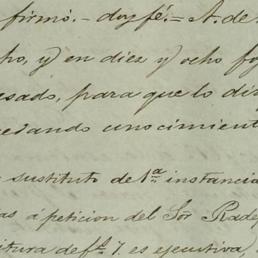 firmó.- doy fé.= A. de
ho, y en diez y ocho fo
esado, para que lo di
sustituto de 1ª instancia
as á peticion del Sor
itura de fs. 7. es ejecutiva,